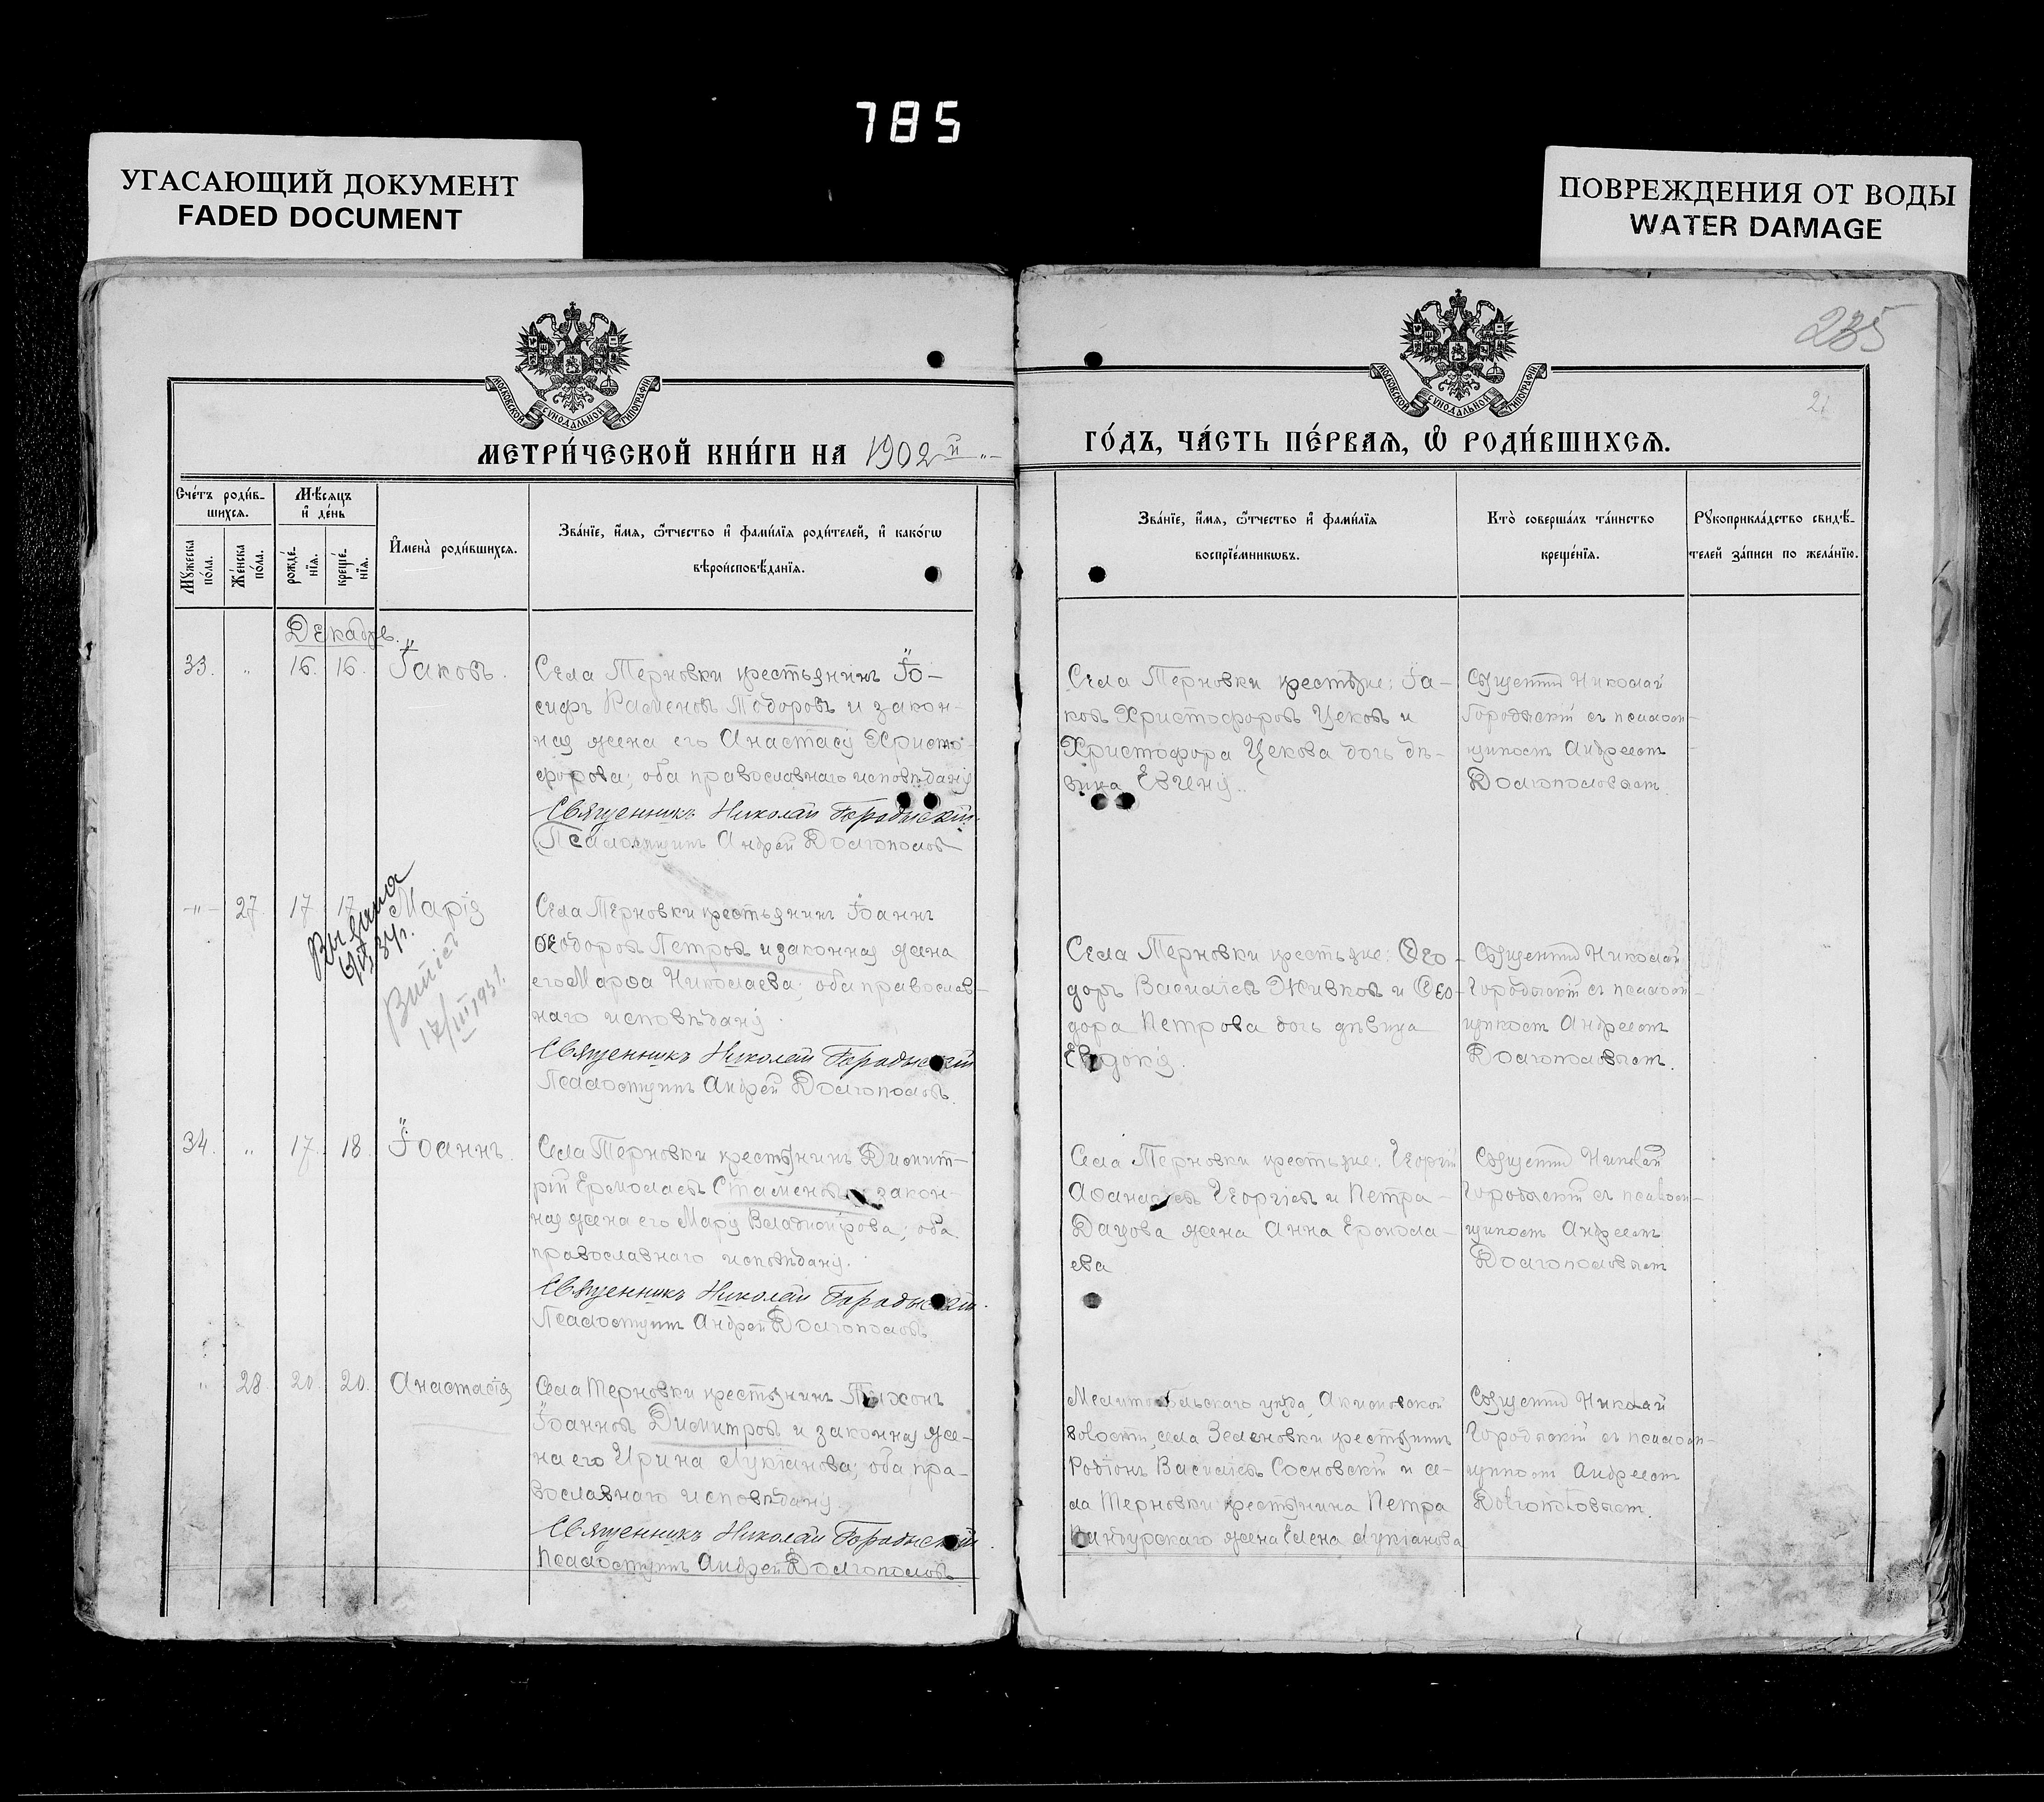 785
УГАСАЮЩИЙ ДОКУМЕНТ
FADED DOCUMENT
ПОВРЕЖДЕНИЯ ОТ ВОДЫ
WATER DAMAGE
235
МОСКОВСКОЙ СѴНОДАЛЬНОЙ ТИПОГРАФІИ
МОСКОВСКОЙ СѴНОДАЛЬНОЙ ТИПОГРАФІИ
21
МЕТРИ́ЧЕСКОЙ КНИ́ГИ НА 1902й
ГО́ДЪ, ЧА́СТЬ ПЕ́РВАЯ, Ѿ РОДИ́ВШИХСЯ.
Сче́тъ роди́в-
шихся.
Мꙋ́жеска по́ла.
Же́нска по́ла.
Мѣ́сяцъ
и҆ де́нь
рожде́-
нїя.
креще́-
нїя.
И҆мена̀ роди́вшихся.
Зва́нїе, и҆́мя, ѻ҆́тчество и҆ фами́лїя роди́телей, и҆ како́гѡ
вѣроисповѣ́данїя.
Зва́нїе, и҆́мя, ѻ҆́тчество и҆ фами́лїя
воспрїе́мникѡвъ.
Кто̀ соверша́лъ та́инство
креще́нїя.
Рꙋкоприкла́дство свидѣ́-
телей за́писи по жела́нїю.
Декабрь.
33. " 16. 16. Іаковъ.
Села Терновки крестьянинъ Іо-
сифъ Каменовъ Тодоровъ и закон-
ная жена его Анастасія Христо-
форова; оба православнаго исповѣданія
Священникъ Николай Городыскій.
Псаломщикъ Андрей Долгополовъ
Села Терновки крестьяне: Іа-
ковъ Христофоровъ Цековъ и
Христофора Цекова дочь дѣ-
вица Евгенія.
Священникъ Николай
Городыскій съ псалом-
щикомъ Андреемъ
Долгополовымъ.
-"- 27. 17 17 Марія
Выдана
34г.
Витіс
17/III 193
Села Терновки крестьянинъ Іоаннъ
Ѳеодоровъ Петровъ и законная жена
его Марѳа Николаева; оба православ-
наго исповѣданія.
Священникъ Николай Городыскій
Псаломщикъ Андрей Долгополовъ.
Села Терновки крестьяне: Ѳео-
доръ Васильевъ Живковъ и Ѳео-
дора Петрова дочь дѣвица
Евдокія.
Священникъ Николай
Городыскій съ псалом-
щикомъ Андреемъ
Долгополовымъ.
34. " 17. 18. Іоаннъ.
Села Терновки крестьянинъ Димит-
рій Ермолаевъ Стаменовъ и закон-
ная жена его Марія Владимірова; оба
православнаго исповѣданія.
Священникъ Николай Городыскій.
Псаломщикъ Андрей Долгополовъ.
Села Терновки крестьяне: Георгій
Аѳанасіевъ Георгіевъ и Петра
Дацова жена Анна Ермола-
ева
Священникъ Николай
Городыскій съ псалом-
щикомъ Андреемъ
Долгополовымъ
" 28. 20. 20. Анастасія
Села Терновки крестьянинъ Тихонъ
Іоанновъ Димитровъ и законная же-
на его Ирина Лукіанова; оба пра-
вославнаго исповѣданія.
Священникъ Николай Городыскій.
Псаломщикъ Андрей Долгополовъ
Мелитопольскаго уѣзда, Акимовской
волости, села Зеленовки крестьянинъ
Родіонъ Васильевъ Сосновскій и се-
ла Терновки крестьянина Петра
жена Елена Лукіанова
Священникъ Николай
Городыскій съ псалом-
щикомъ Андреемъ
Долгополовымъ.